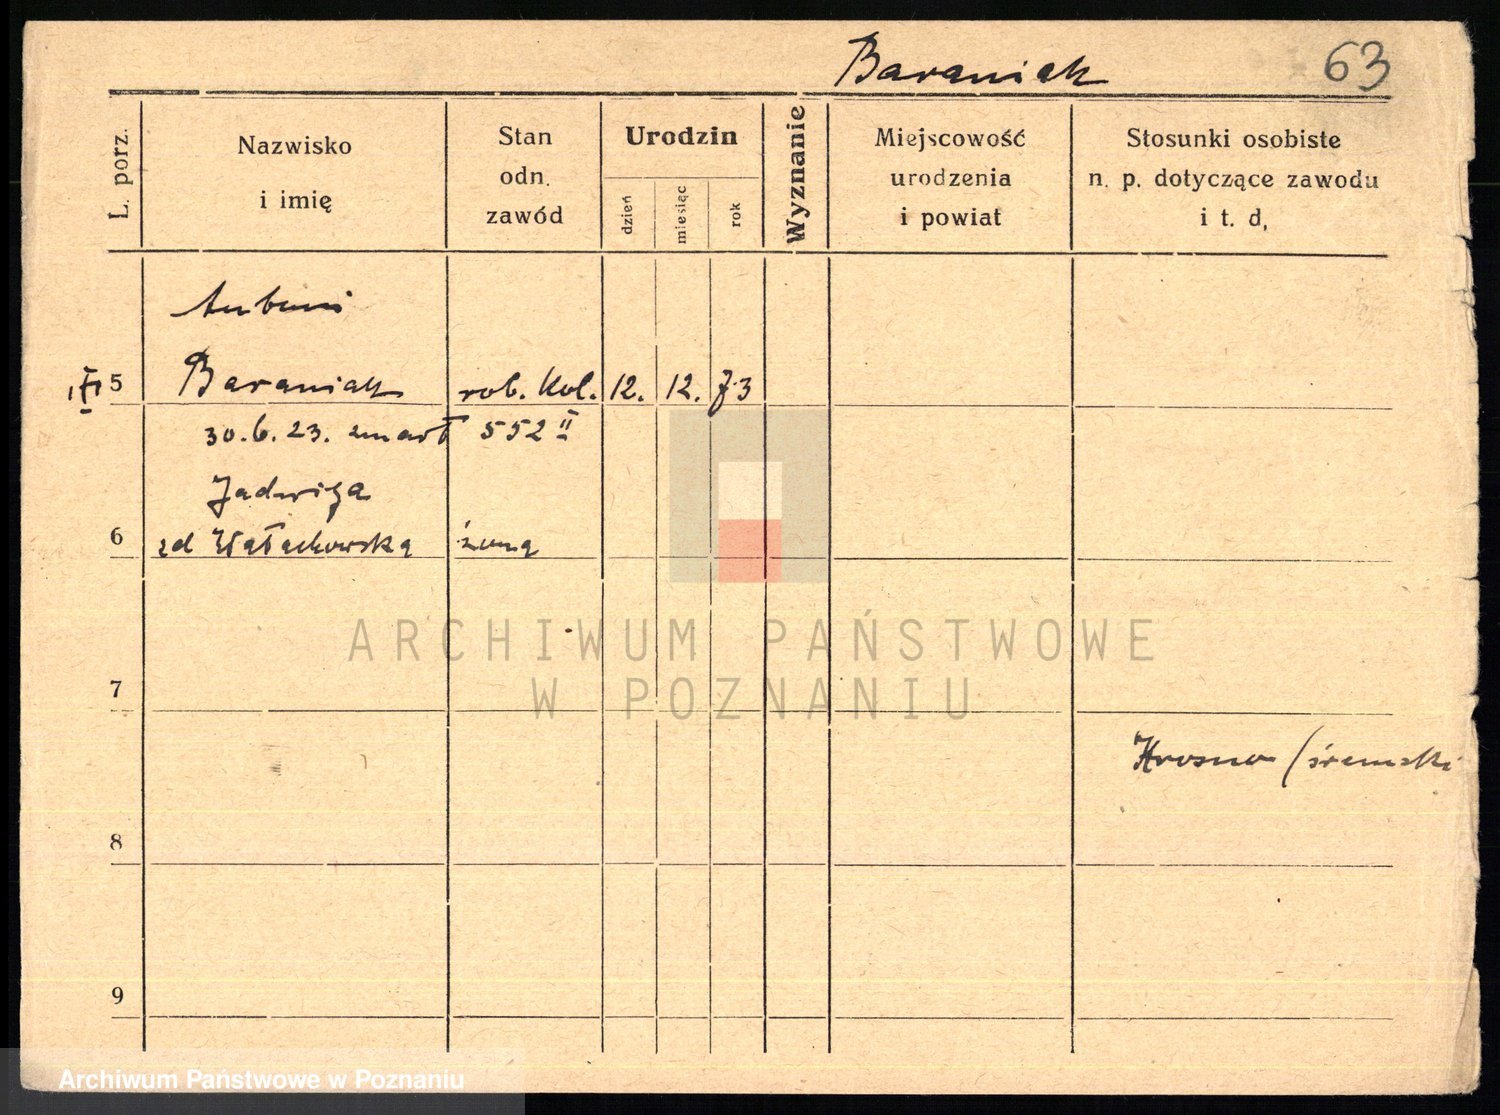 Baraniak 63
L. porz.
Nazwisko
i imię
Stan
odn.
zawód
Urodzin
dzień
miesiąc
rok
Wyznanie
Miejscowość
urodzenia
i powiat
Stosunki osobiste
n. p. dotyczące zawodu
i t. d,
Antoni
5 Baraniak rob. kol. 12. 12. 73
30.6.23. zmarł 552 II
Jadwiga
6 zd żona
7
Krosno (śremski
8
9
ARCHIWUM PAŃSTWOWE
W POZNANIU
Archiwum Państwowe w Poznaniu